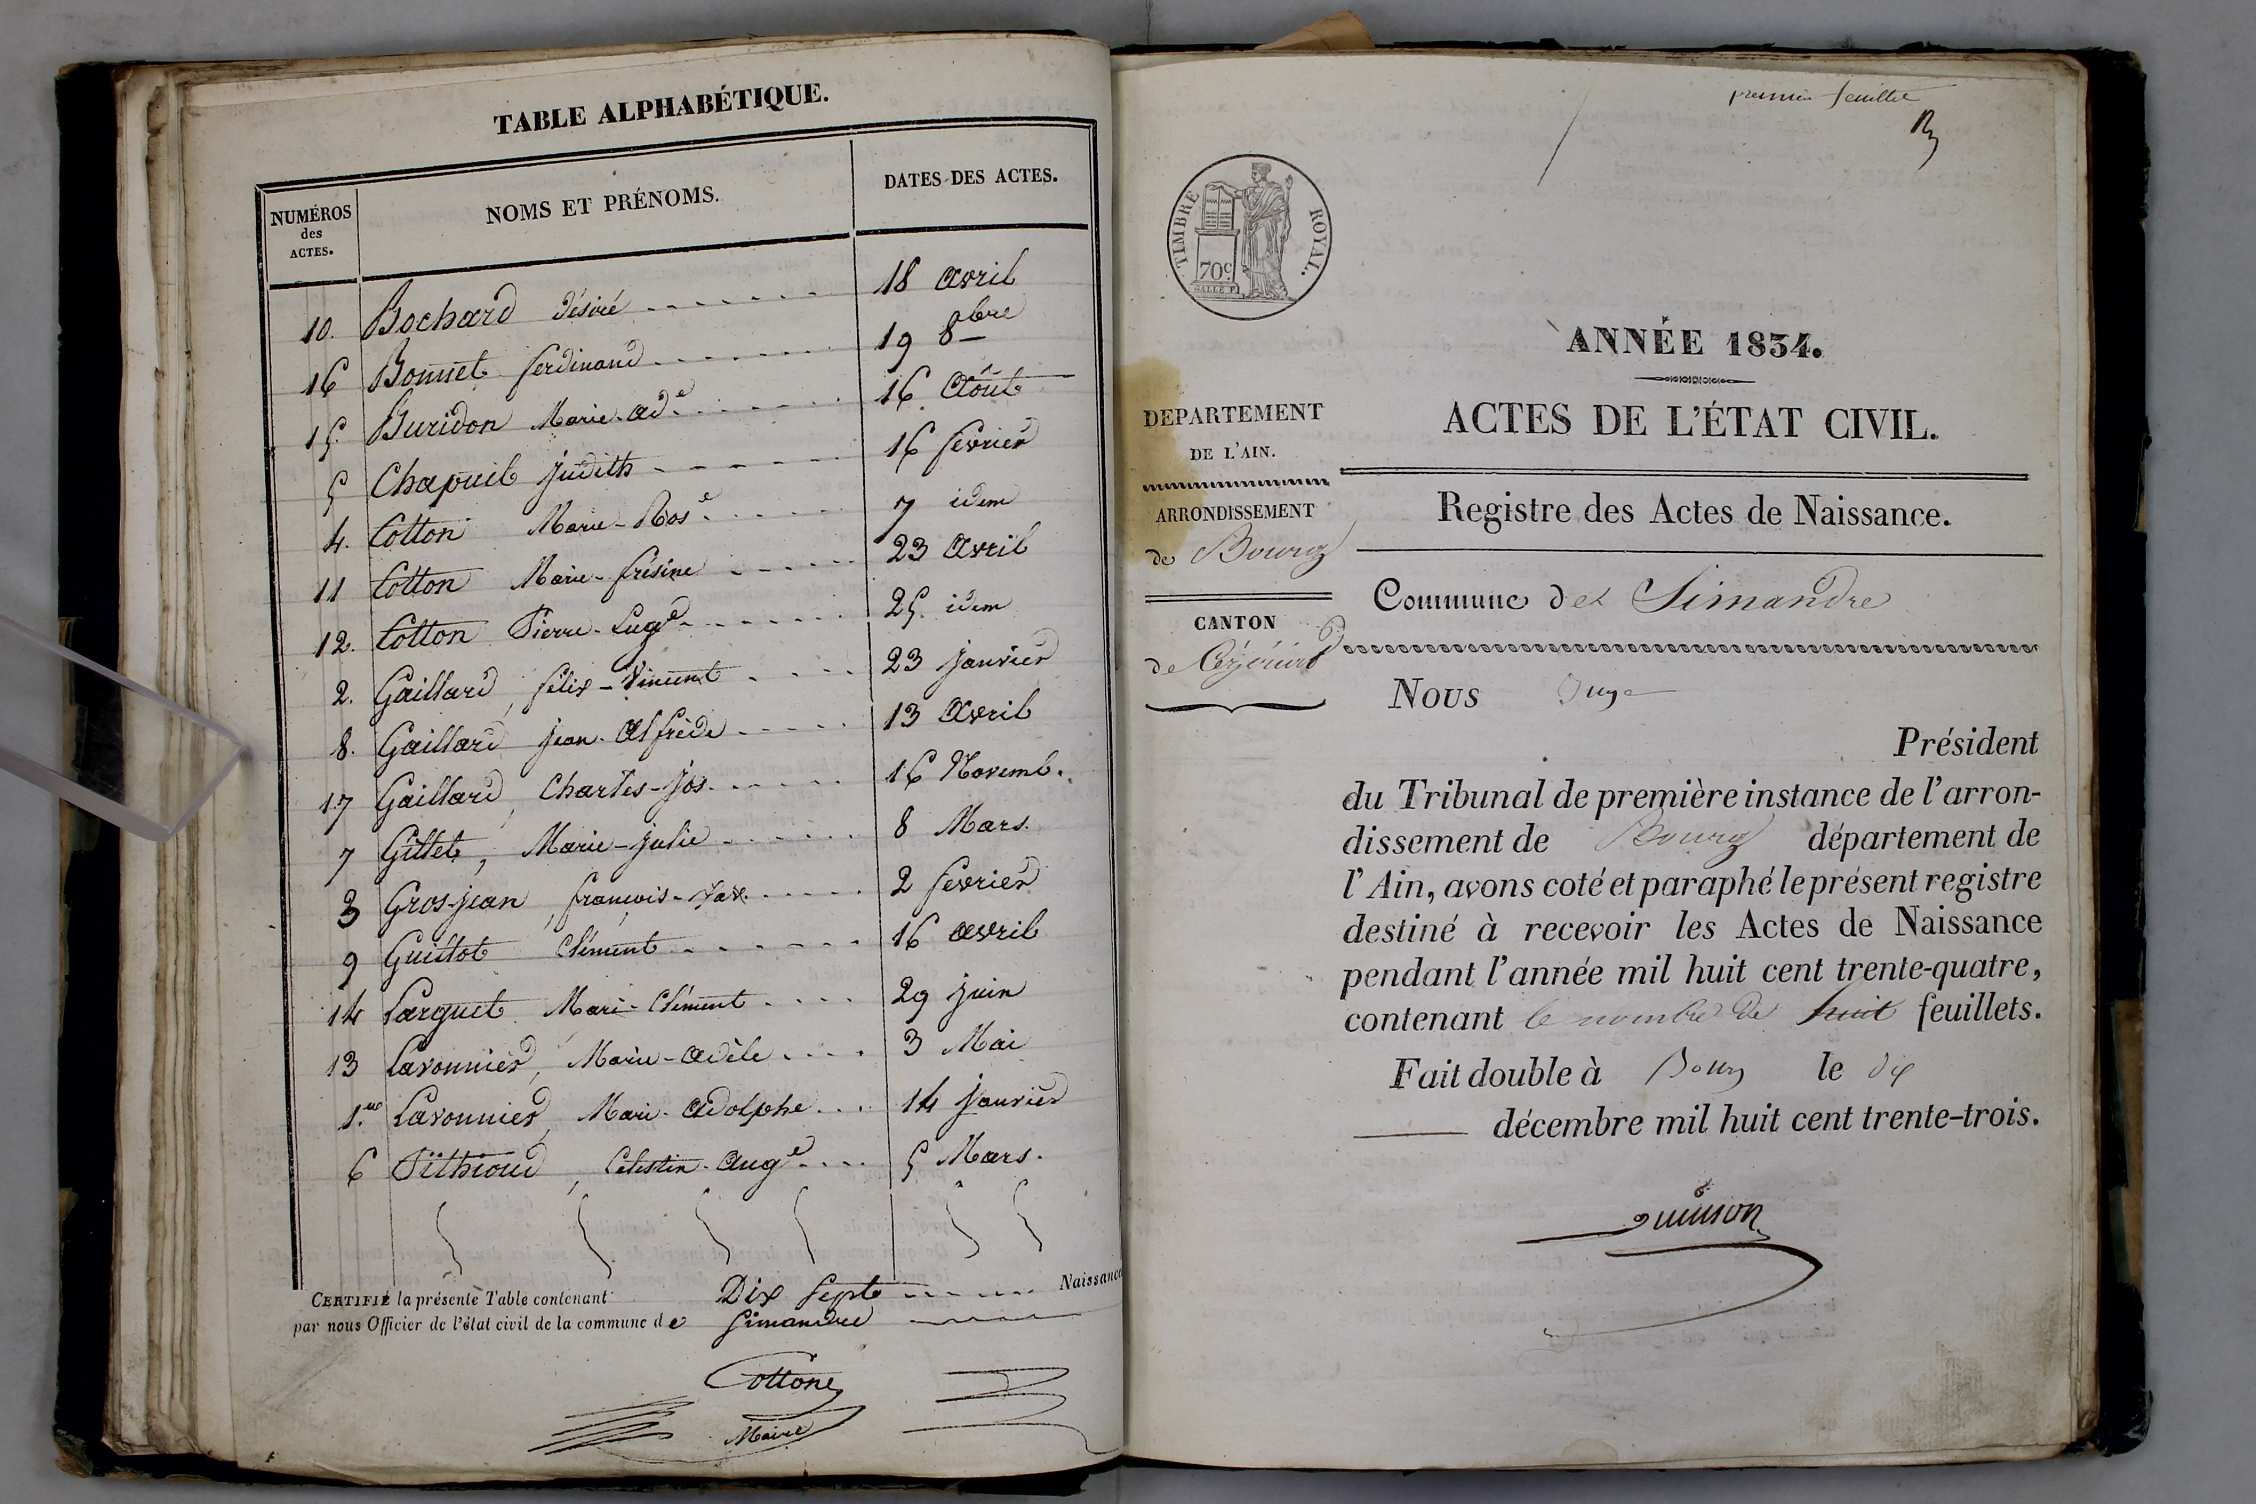 TABLE ALPHABÉTIQUE.
NUMÉROS des ACTES. NOMS ET PRÉNOMS. DATES DES ACTES.
10. Bochard Désiré 18 avril
16 Bonnet ferdinand 19 8bre
15 Buridon Marie-ade 16 Août
5 Chapuis Judith 16 fevrier
4. Cotton Marie-Rose 7 idem
11 Cotton Marie-frésine 23 avril
12. Cotton Pierre-Euge 25 idem
2. Gaillard, félix-Vincent 23 janvier
8. Gaillard jean-Alfrède 13 avril
17 Gaillard, Charles-jos. 16 Novemb.
7 Gillet, Marie-julie 8 Mars.
3 Gros-jean, françois-xav. 2 fevrier
9 Guillot Clément 16 avril
14 Larguet Marie-Clément 29 juin
13 Lavonnier, Marie-adèle 3 Mai
1.er Lavonnier, Marie-adolphe 14 janvier
6 Pithioud, Célestin-Auge 5 Mars.
CERTIFIÉ la présente Table contenant Dix Sept Naissance
par nous Officier de l'état civil de la commune de Simandre
Cotton
Maire
premier feuillet
TIMBRE ROYAL.
70c.
ANNÉE 1834.
ACTES DE L'ÉTAT CIVIL.
Registre des Actes de Naissance.
DEPARTEMENT
DE L'AIN.
ARRONDISSEMENT
de Bourg
CANTON
de Ceyzériat
Commune de Simandre
Nous Juge
Président
du Tribunal de première instance de l'arron-
dissement de Bourg département de
l'Ain, avons coté et paraphé le présent registre
destiné à recevoir les Actes de Naissance
pendant l'année mil huit cent trente-quatre,
contenant le nombre de huit feuillets.
Fait double à Bourg le dix
décembre mil huit cent trente-trois.